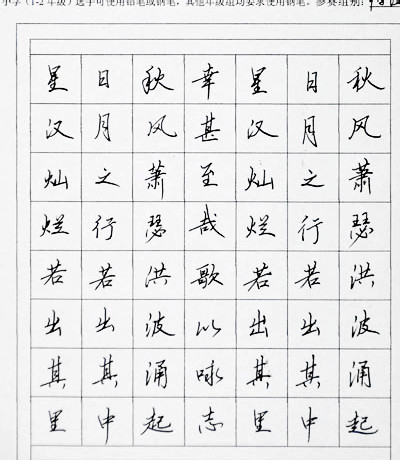 小学（1-2年级）选手可使用铅笔或钢笔，其他年级组均要求使用钢笔。参赛组别：
秋风萧瑟洪波涌起
日月之行若出其中
星汉灿烂若出其里
幸甚至哉歌以咏志
秋风萧瑟洪波涌起
日月之行若出其中
星汉灿烂若出其里